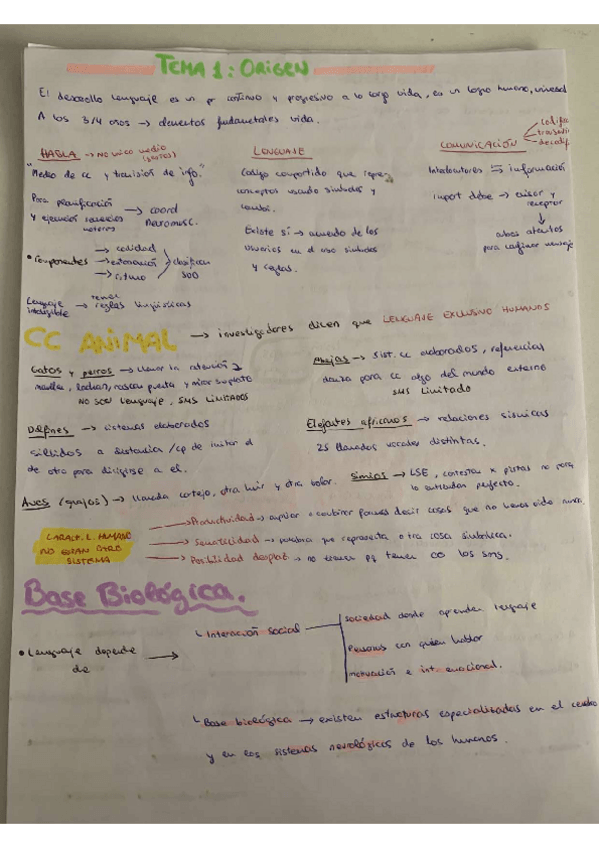 TEMA 1: ORIGEN
El desarrollo lenguaje es un pr continuo y progresivo a lo largo vida, es un logro humano, universal
A los 3/4 años → elementos fundamentales vida.
HABLA → No único medio (gestos)
"Medio de cc y transmisión de info."
Para planificación y ejecución → coord Neuromusc.
• Componentes → calidad
→ entonación
→ ritmo
Lenguaje intelegible → reglas lingüísticas
LENGUAJE
Código compartido que repres
conceptos usando símbolos y
combi.
Existe si → acuerdo de los
usuarios en el uso símbolos
y reglas.
COMUNICACIÓN
Interlocutores ⇆ información
import debe → emisor y receptor
↓
ambos atentos
para confirmar mensaje
CC ANIMAL → investigadores dicen que LENGUAJE EXCLUSIVO HUMANOS
Gatos y perros → llamar la atención
maullar, ladrar, rascan puerta y mirar su plato
NO SOU Lenguaje, SMS LIMITADOS
Abejas → Sist. cc elaborados, referencias
danza para cc algo del mundo externo
SMS Limitado
Delfines → sistemas elaborados
silbidos a distancia / cp de imitar el
de otro para dirigirse a el.
Elefantes africanos → relaciones sísmicas
25 llamadas vocales distintas.
Simios → LSE, contestan x pistas no para
Aves (grajos) → llamada cortejo, otra huir y otra volar.
lo entiendan perfecto.
CARACT. L. HUMANO
NO ESTÁN OTRO
SISTEMA
→ Productividad → ampliar o combinar podemos decir cosas que no hemos oído nunca.
→ Semanticidad → palabra que representa otra cosa simbólica.
→ Posibilidad desplaz → no tienen pq tener cc los sms.
Base Biológica.
• Lenguaje depende de →
Interacción social
sociedad donde aprenden lenguaje
Personas con quien hablar
motivación e int. emocional.
Base biológica → existen estructuras especializadas en el cerebro
y en los sistemas neurológicos de los humanos.